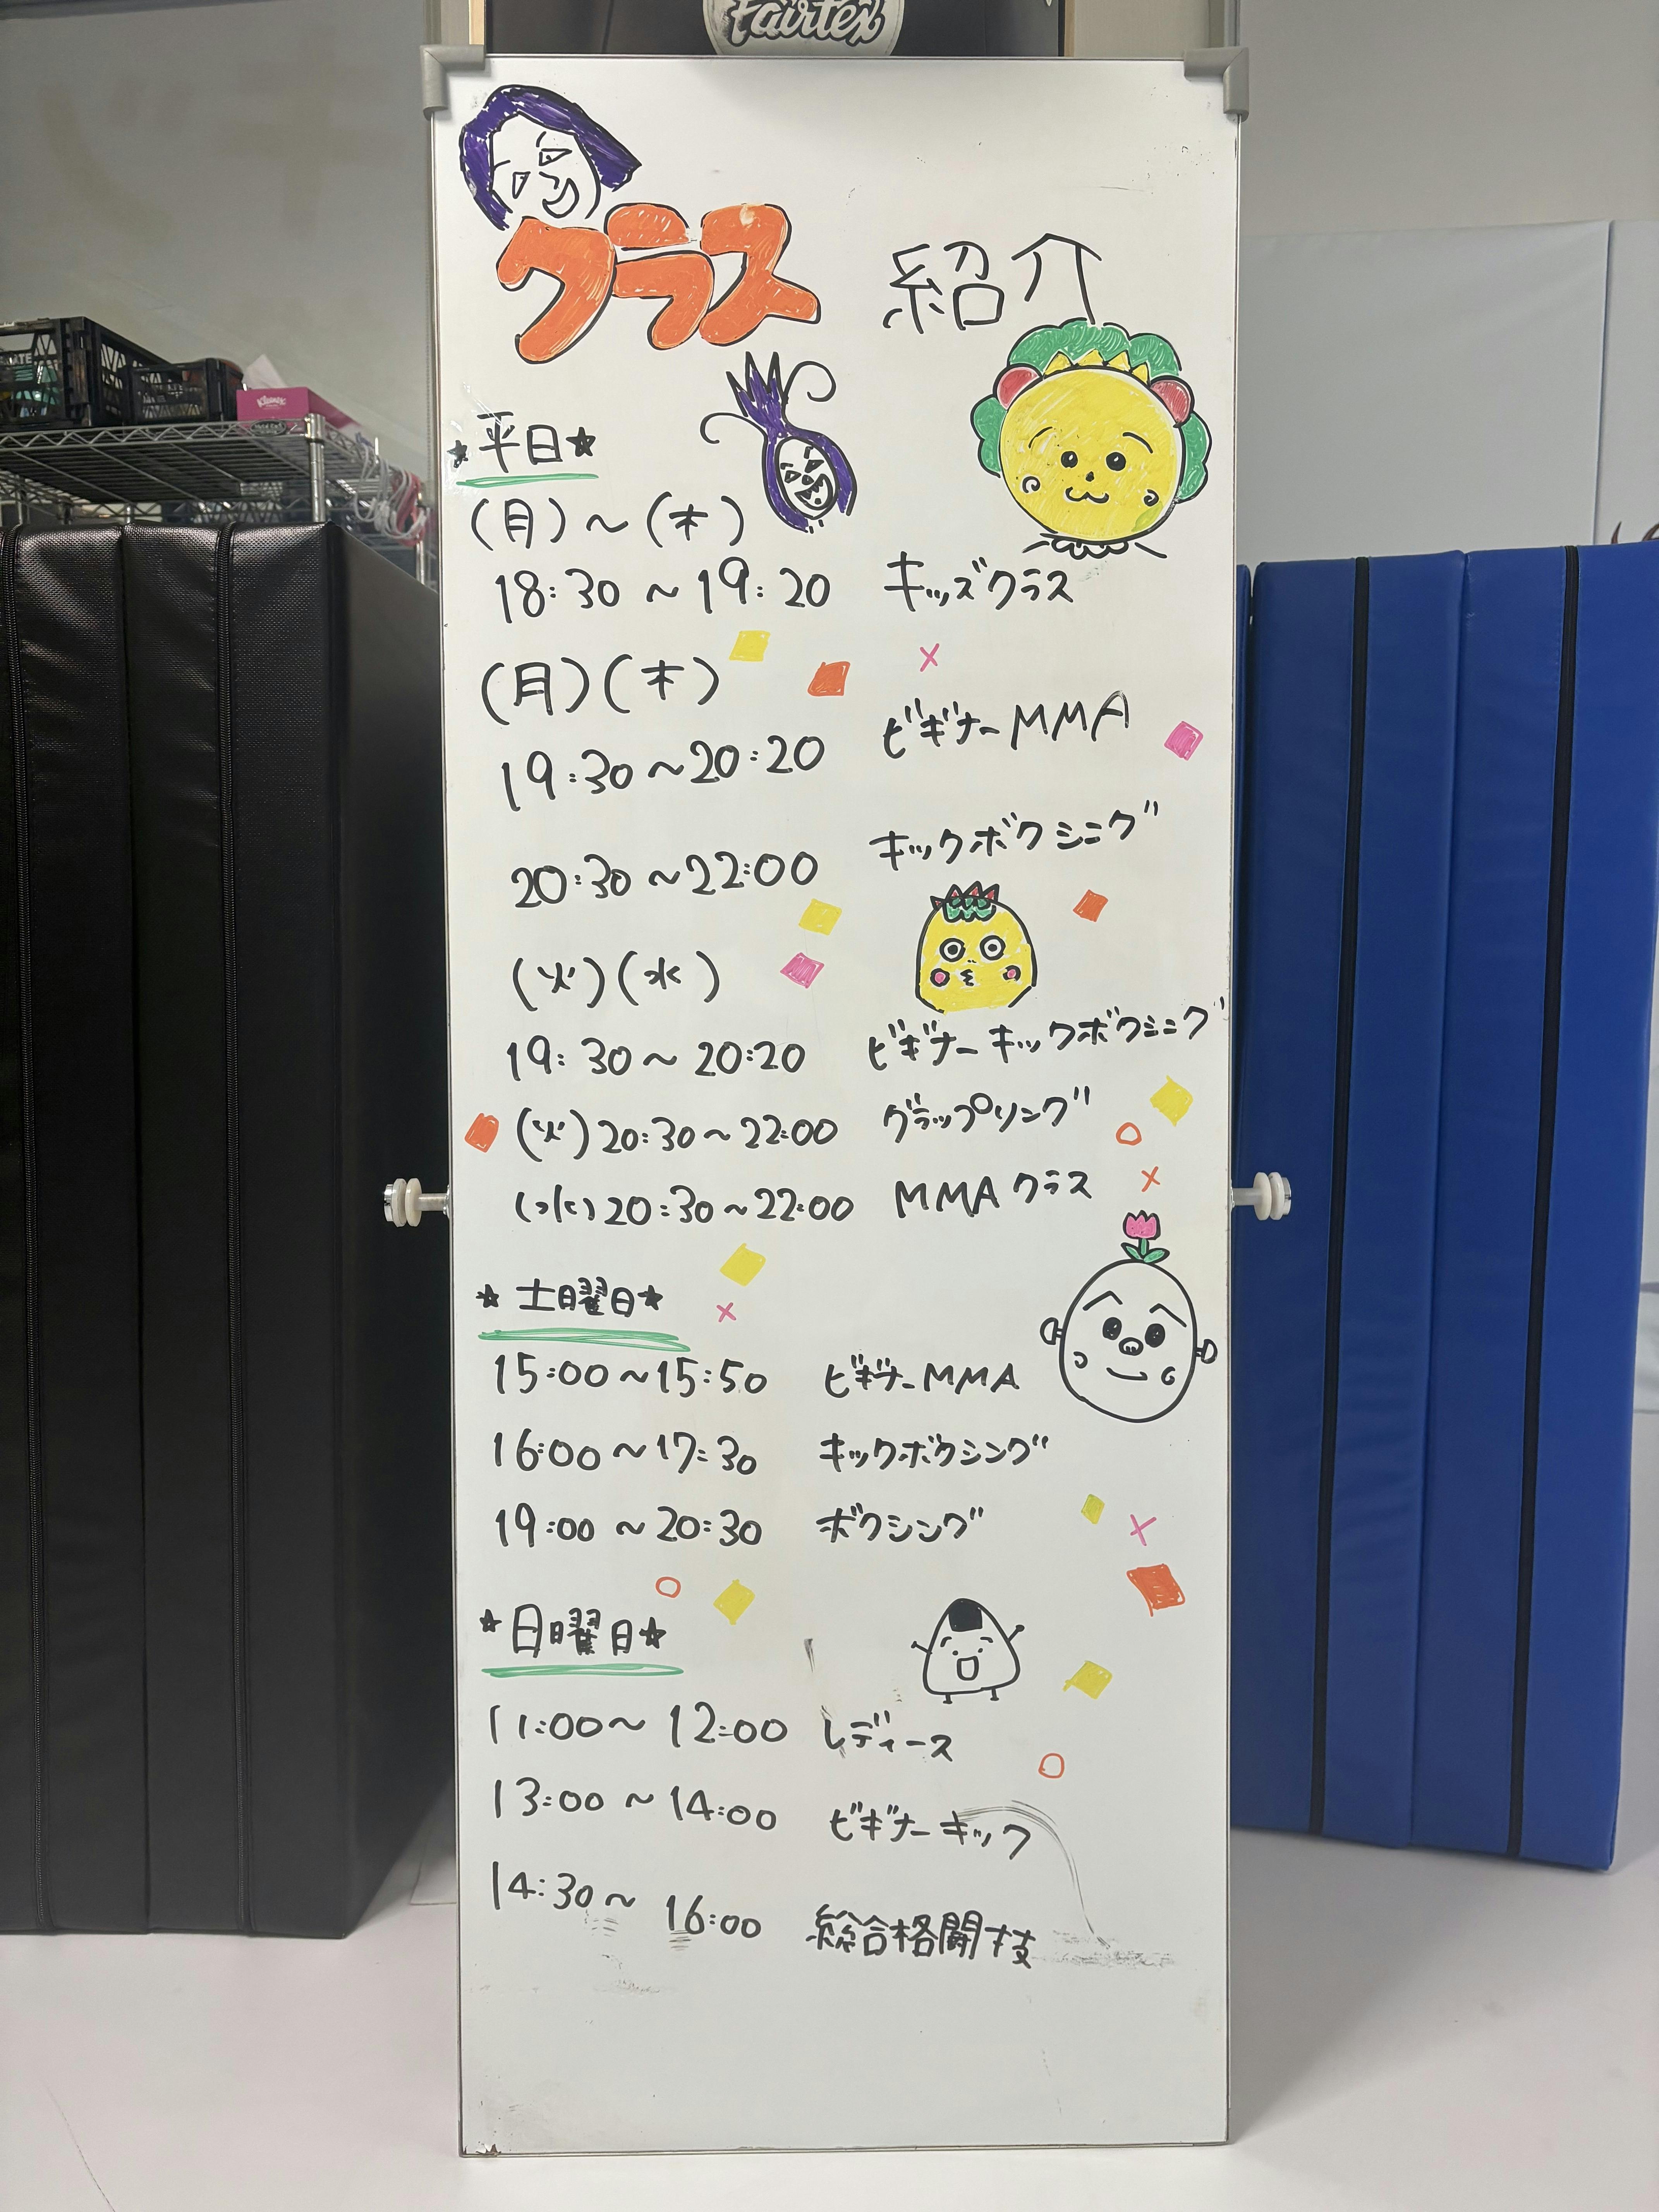 Fairtex
クラス 紹介
★平日★
(月)～(木)
18:30～19:20 キッズクラス
(月)(木)
19:30～20:20 ビギナーMMA
20:30～22:00 キックボクシング
(火)(水)
19:30～20:20 ビギナーキックボクシング
(火)20:30～22:00 グラップリング
(水)20:30～22:00 MMAクラス
★土曜日★
15:00～15:50 ビギナーMMA
16:00～17:30 キックボクシング
19:00～20:30 ボクシング
★日曜日★
11:00～12:00 レディース
13:00～14:00 ビギナーキック
14:30～16:00 総合格闘技
Kleenex